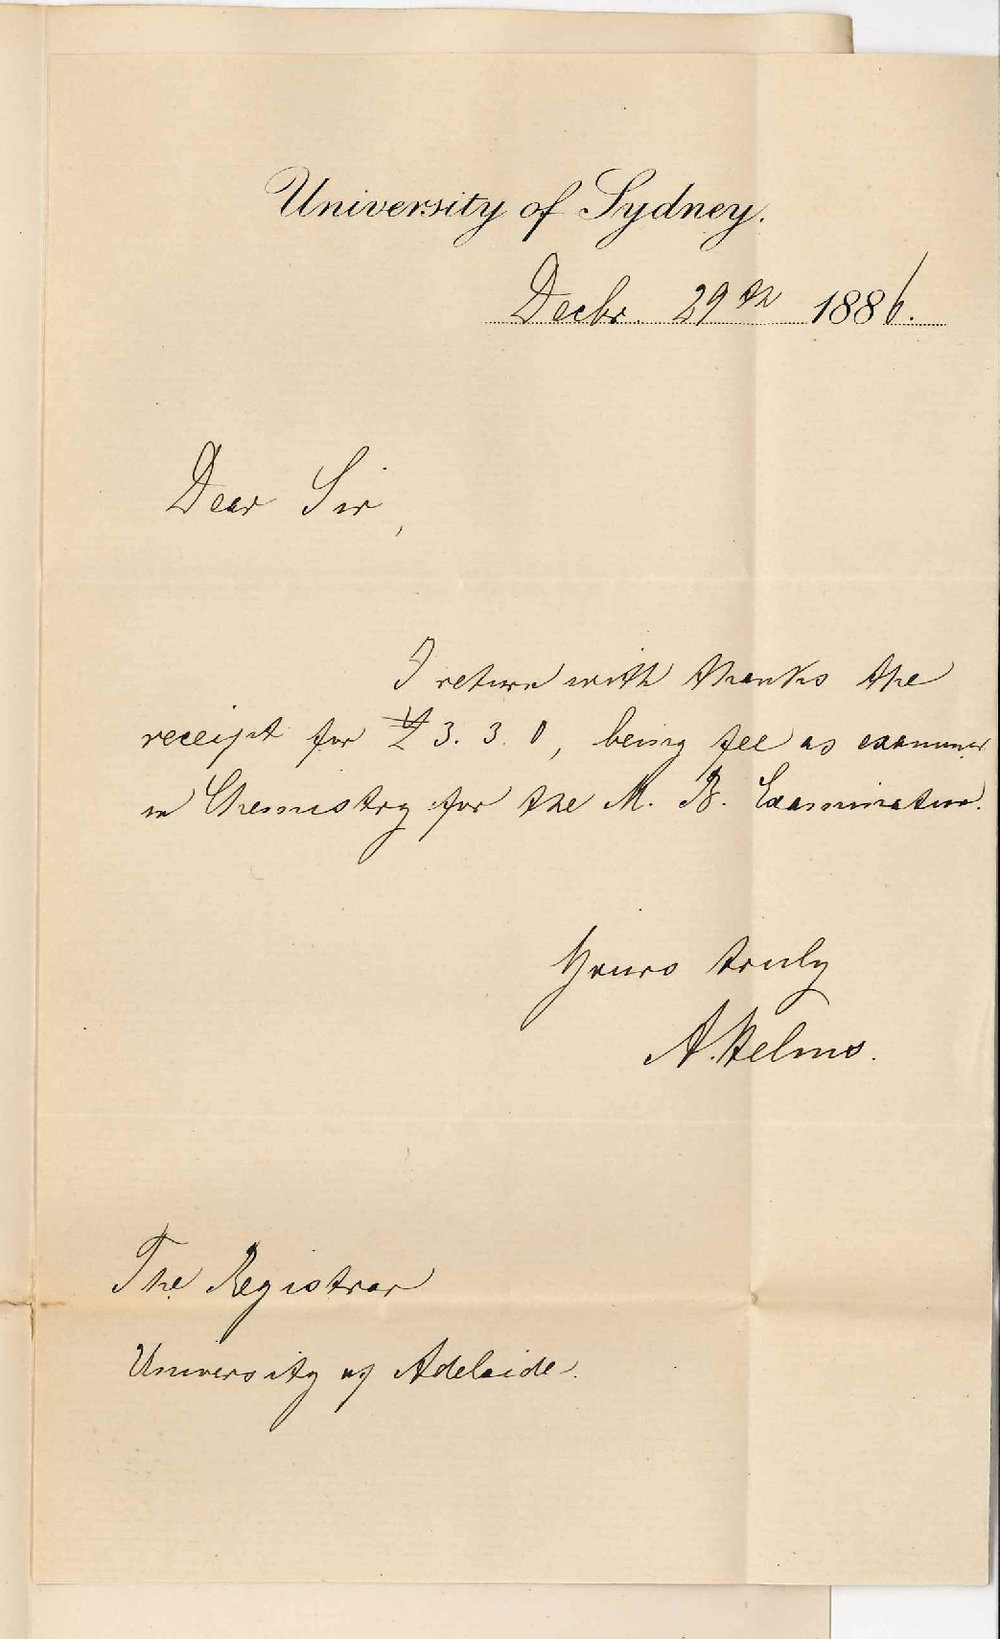 University of Sydney.
Decbr. 29th 1886.
Dear Sir,
I return with thanks the
receipt for £3. 3. 0, being fee as examiner
in Chemistry for the M. B. Examination.
Yours truly
A. Helms.
The Registrar
University of Adelaide.